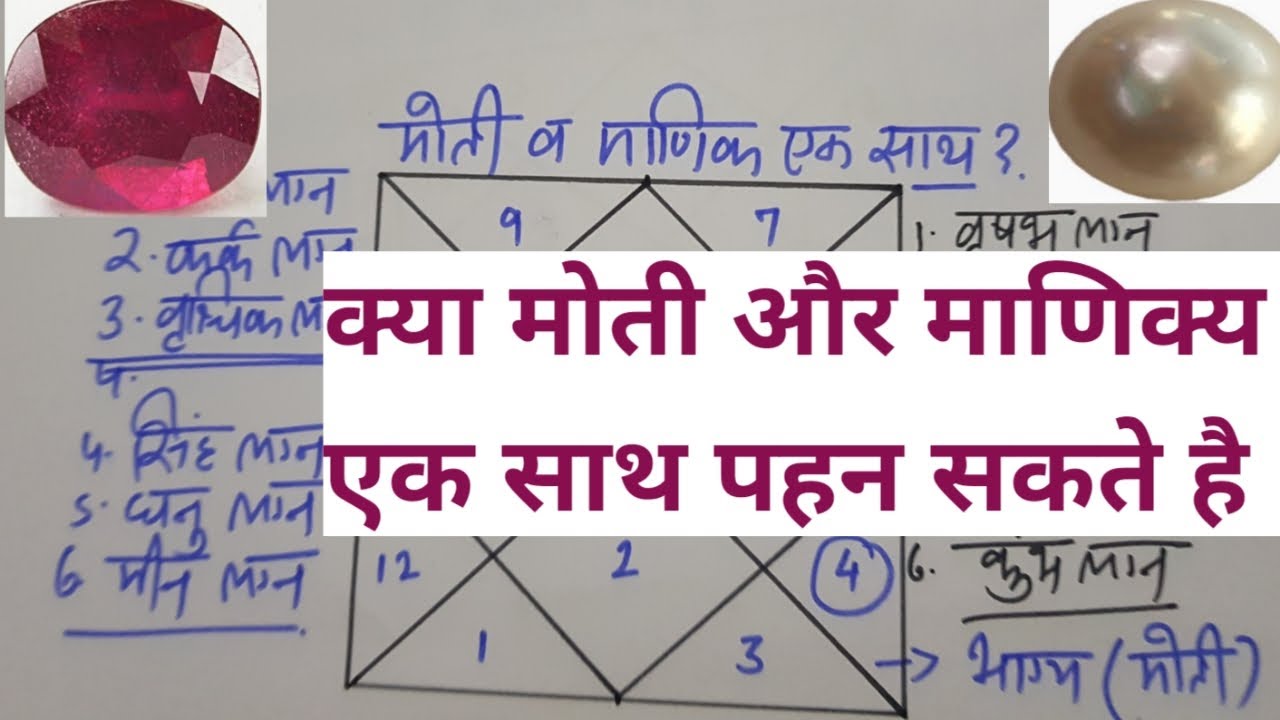 मोती व माणिक एक साथ ?
लग्न
2. कर्क लग्न
3. वृश्चिक ल
4. सिंह लग्न
5. धनु लग्न
6 मीन लग्न
9
7
1. वृषभ लग्न
क्या मोती और माणिक्य
एक साथ पहन सकते है
12
2
4
6. कुंभ लग्न
1
3
→ भाग्य (मोती)